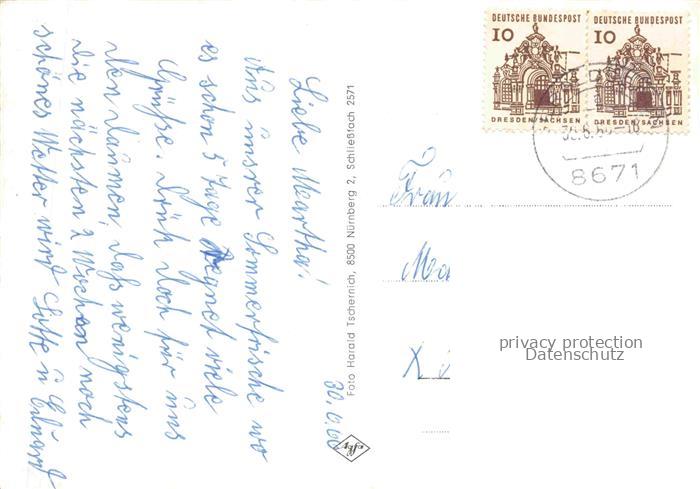 Liebe Martha!
Aus unsrer Sommerfrische wo
es schon 5 Tage regnet viele
Grüße. Drük doch für uns
den Daumen, daß wenigstens
die nächsten 2 Wochen noch
schönes Wetter wird Lotte u Eduard
30.6.66
Foto Harald Tschernich, 8500 Nürnberg 2, Schließfach 2571
Agfa
DEUTSCHE BUNDESPOST
10
DRESDEN/SACHSEN
DEUTSCHE BUNDESPOST
10
DRESDEN/SACHSEN
8671
Frau
Ma
privacy protection
Datenschutz